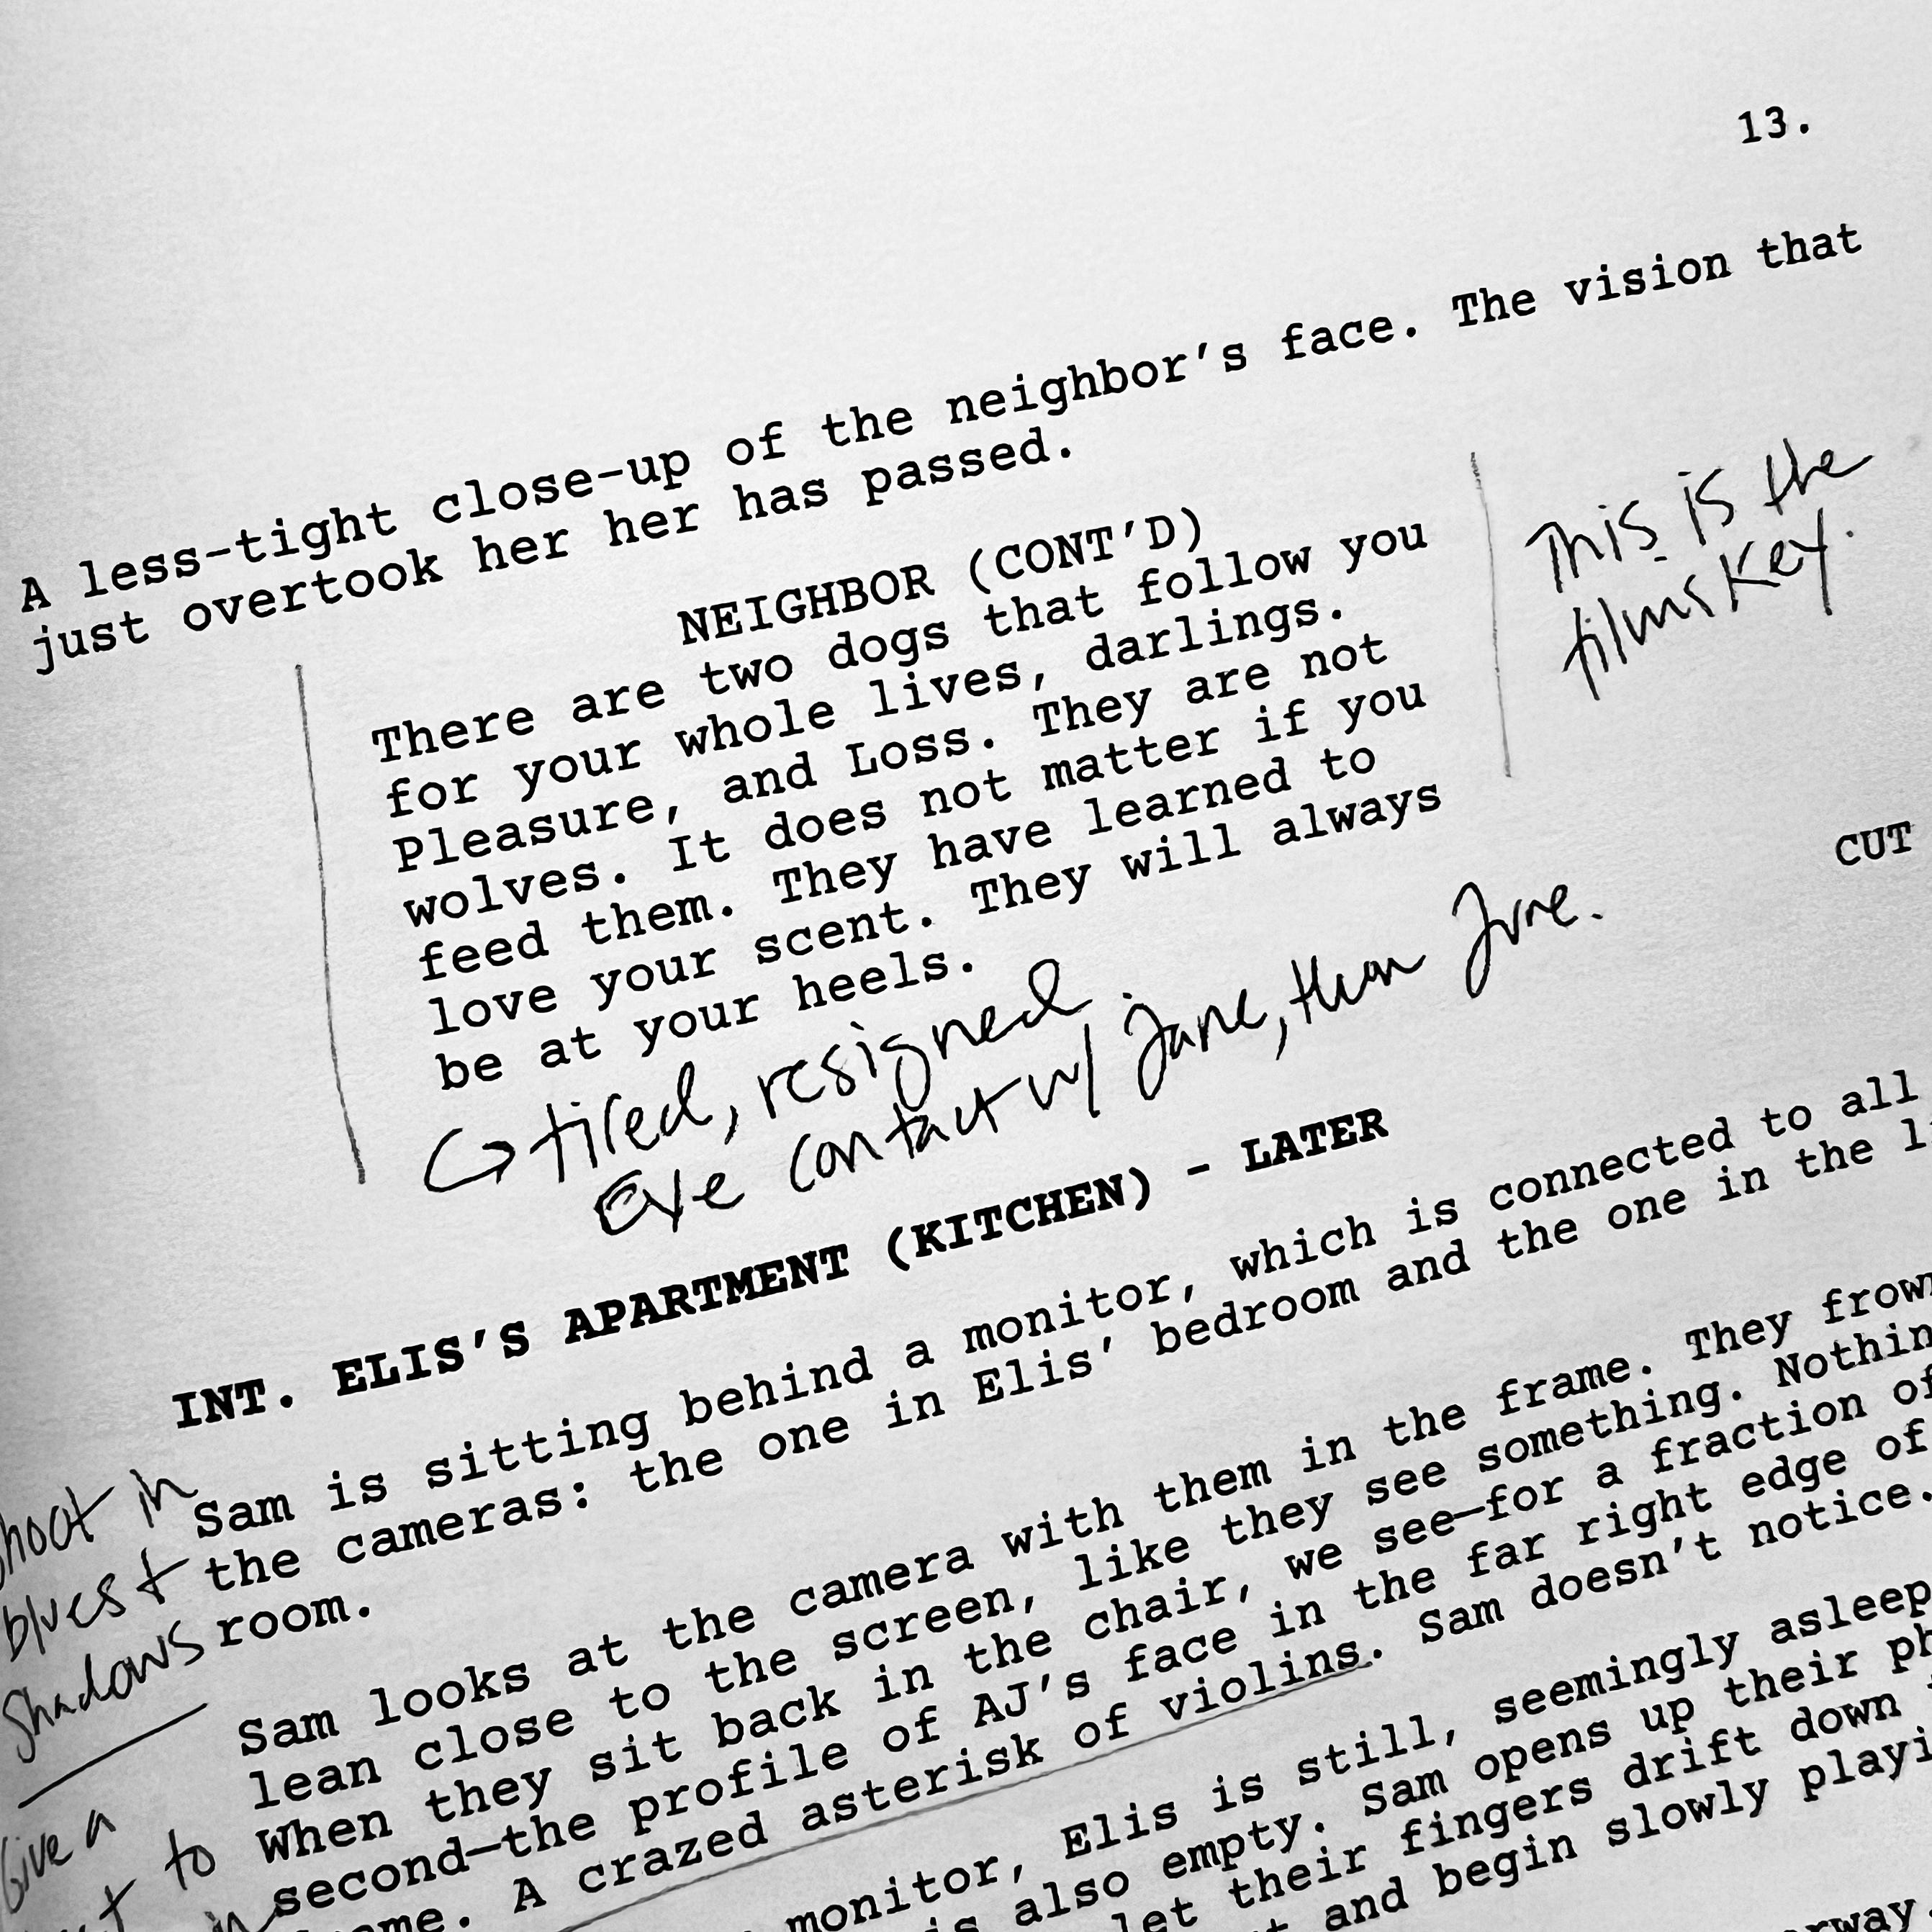 13.
A less-tight close-up of the neighbor's face. The vision that
just overtook her her has passed.
NEIGHBOR (CONT'D)
There are two dogs that follow you
for your whole lives, darlings.
Pleasure, and Loss. They are not
wolves. It does not matter if you
feed them. They have learned to
love your scent. They will always
be at your heels.
This is the
films key.
CUT
tired, resigned.
Eye contact w/ Jane, then June.
INT. ELIS'S APARTMENT (KITCHEN) - LATER
Sam is sitting behind a monitor, which is connected to all
the cameras: the one in Elis' bedroom and the one in the
room.
hoot in
blues +
shadows
Sam looks at the camera with them in the frame. They
lean close to the screen, like they see something.
When they sit back in the chair, we see—for a fraction of
second—the profile of AJ's face in the far right edge of
A crazed asterisk of violins. Sam doesn't notice.
Give a
to
monitor, Elis is still, seemingly asleep
also empty. Sam opens up their
let their fingers drift down
and begin slowly